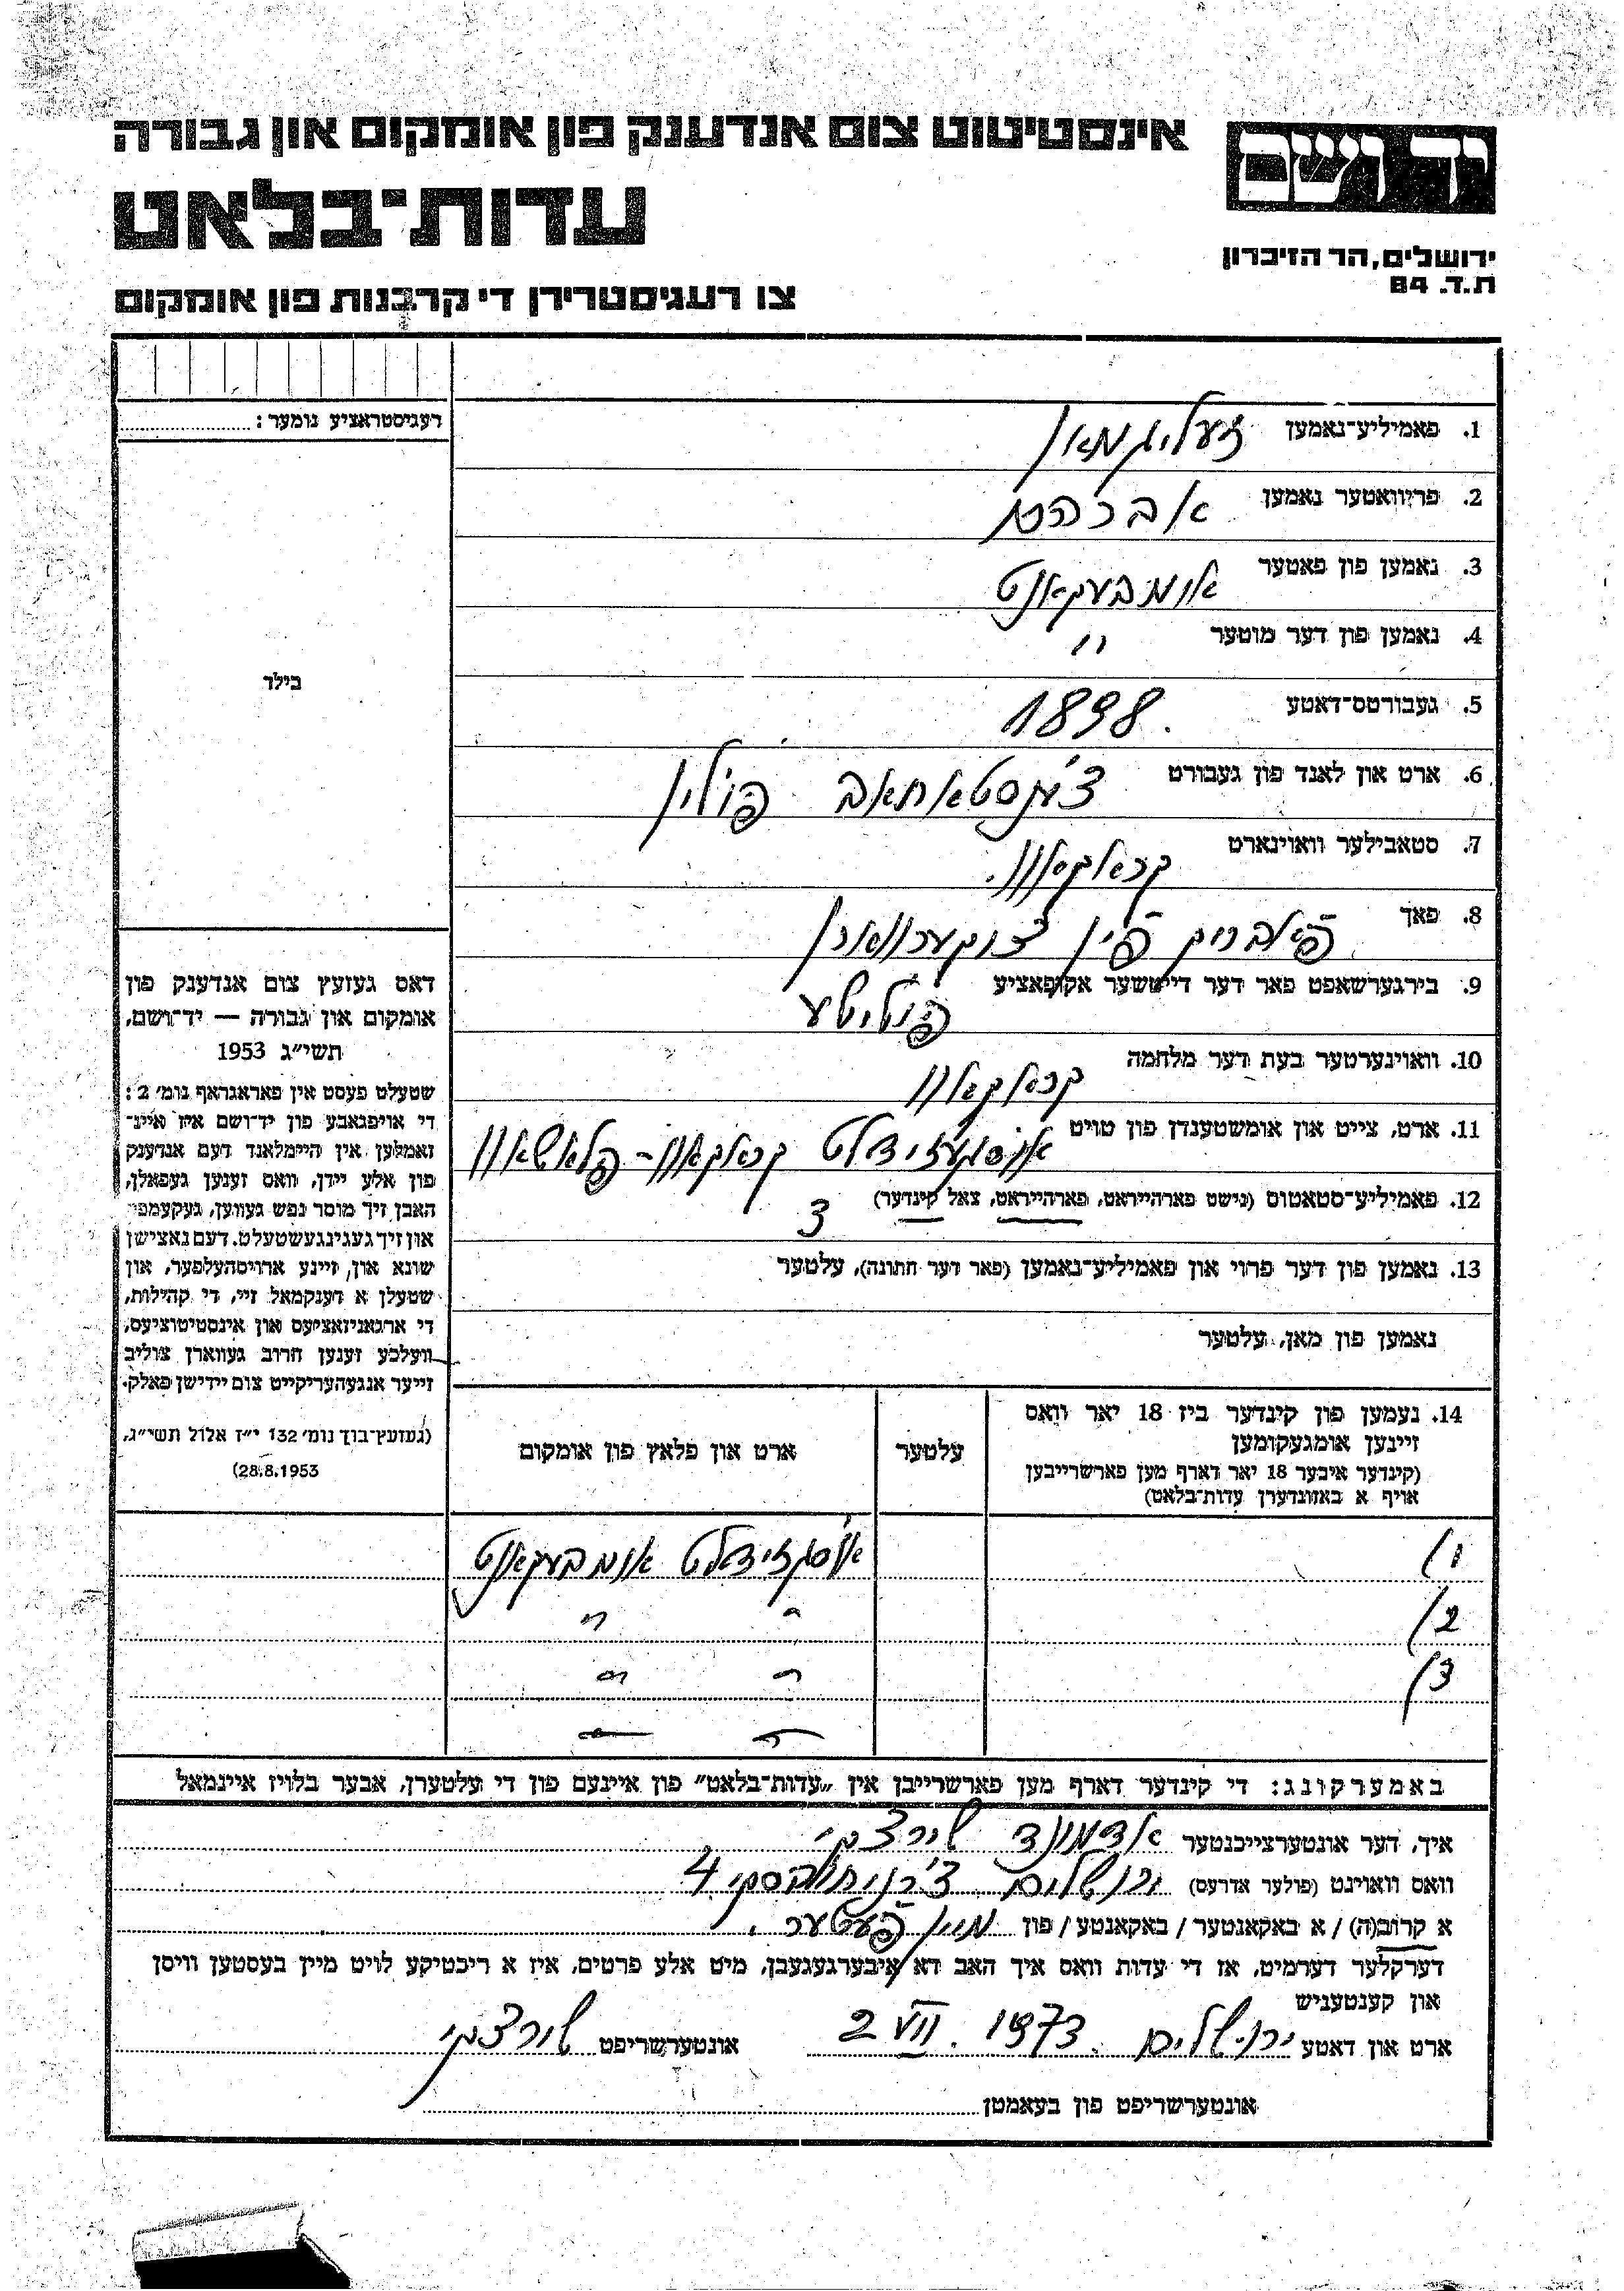 יד ושם
אינסטיטוט צום אנדענק פון אומקום און גבורה
עדות־בלאט
ירושלים, הר הזיכרון
ת.ד. 84
צו רעגיסטרירן די קרבנות פון אומקום
רעגיסטראציע נומער:
בילד
דאס געזעץ צום אנדענק פון
אומקום און גבורה — יד־ושם,
תשי״ג 1953
שטעלט פעסט אין פאראגראף נומ׳ 2:
די אויפגאבע פון יד־ושם איז איינ־
זאמלען אין היימלאנד דעם אנדענק
פון אלע יידן, וואס זענען געפאלן,
האבן זיך מוסר נפש געווען, געקעמפט
און זיך געגינגעשטעלט דעם נאצישן
שונא און זיינע ארויסהעלפער, און
שטעלן א דענקמאל זיי, די קהילות,
די ארגאניזאציעס און אינסטיטוציעס,
וועלכע זענען חרוב געווארן צוליב
זייער אנגעהעריקייט צום יידישן פאלק.
(געזעץ־בוך נומ׳ 132 י״ז אלול תשי״ג,
28.8.1953)
1. פאמיליע־נאמען זעליגמאן
2. פריוואטער נאמען אברהם
3. נאמען פון פאטער אומבעקאנט
4. נאמען פון דער מוטער "
5. געבורטס־דאטע 1898.
6. ארט און לאנד פון געבורט צ'נסטאחאב פולין
7. סטאבילער וואוינארט קראקאוו.
8. פאך פאבריק פין צוקערווארן
9. בירגערשאפט פאר דער דייטשער אקופאציע פוילישע
10. וואוינערטער בעת דער מלחמה קראקאוו
11. ארט, צייט און אומשטענדן פון טויט קראקאוו - פלאשאוו
12. פאמיליע־סטאטוס (נישט פארהייראט, פארהייראט, צאל קינדער) 3
13. נאמען פון דער פרוי און פאמיליע־נאמען (פאר דער חתונה), עלטער
נאמען פון מאן, עלטער
14. נעמען פון קינדער ביז 18 יאר וואס
זיינען אומגעקומען
(קינדער איבער 18 יאר דארף מען פארשרייבן
אויף א באזונדערן עדות־בלאט)
עלטער
ארט און פלאץ פון אומקום
1) אומבעקאנט
2) " "
3) " "
באמערקונג: די קינדער דארף מען פארשרייבן אין „עדות־בלאט” פון איינעם פון די עלטערן, אבער בלויז איינמאל
איך, דער אונטערצייכנטער אדמונד שורצמי
וואס וואוינט (פולער אדרעס) ירושלים צ'רניחובסקי 4
א קרוב(ה) / א באקאנטער / באקאנטע / פון מיין פעטער.
דערקלער דערמיט, אז די עדות וואס איך האב דא איבערגעגעבן, מיט אלע פרטים, איז א ריכטיקע לויט מיין בעסטען וויסן
און קענטעניש
ארט און דאטע ירושלים. 2 VII. 1973 אונטערשריפט שורצמי
אונטערשריפט פון בעאמטן